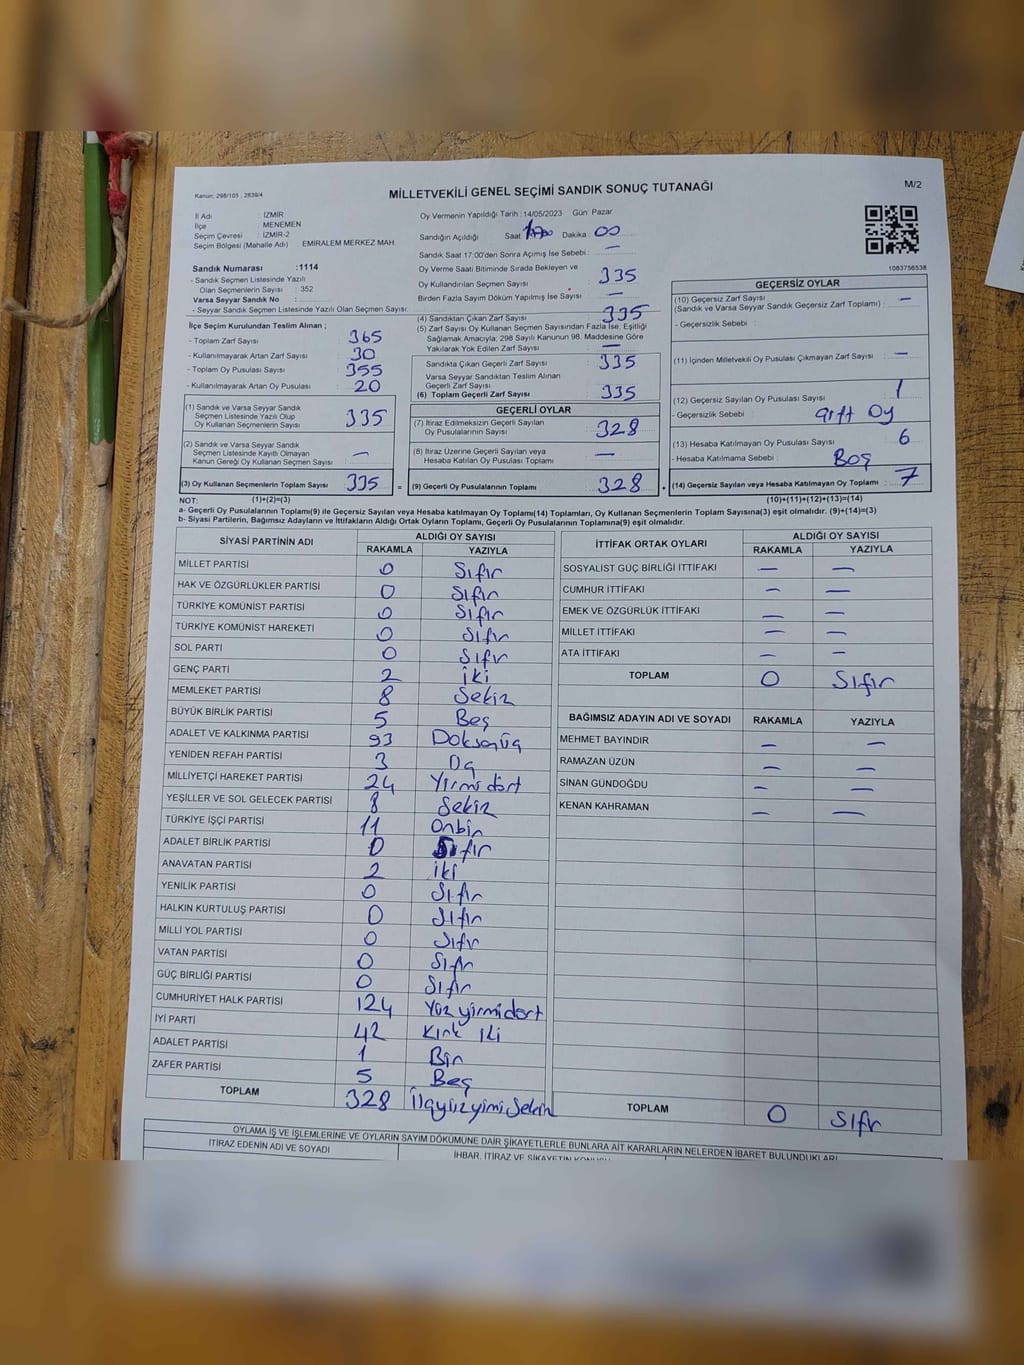 Kanun; 298/105 , 2839/4
MİLLETVEKİLİ GENEL SEÇİMİ SANDIK SONUÇ TUTANAĞI
M/2
İl Adı : İZMİR
İlçe : MENEMEN
Seçim Çevresi : İZMİR-2
Seçim Bölgesi (Mahalle Adı) EMİRALEM MERKEZ MAH.
Sandık Numarası :1114
- Sandık Seçmen Listesinde Yazılı
Olan Seçmenlerin Sayısı : 352
Varsa Seyyar Sandık No :
- Seyyar Sandık Seçmen Listesinde Yazılı Olan Seçmen Sayısı:
İlçe Seçim Kurulundan Teslim Alınan ;
- Toplam Zarf Sayısı : 365
- Kullanılmayarak Artan Zarf Sayısı : 30
- Toplam Oy Pusulası Sayısı : 355
- Kullanılmayarak Artan Oy Pusulası : 20
(1) Sandık ve Varsa Seyyar Sandık
Seçmen Listesinde Yazılı Olup
Oy Kullanan Seçmenlerin Sayısı : 335
(2) Sandık ve Varsa Seyyar Sandık
Seçmen Listesinde Kayıtlı Olmayan
Kanun Gereği Oy Kullanan Seçmen Sayısı : —
(3) Oy Kullanan Seçmenlerin Toplam Sayısı : 335 =
Oy Vermenin Yapıldığı Tarih : 14/05/2023 Gün: Pazar
Sandığın Açıldığı Saat Dakika 00
Sandık Saat 17:00'den Sonra Açılmış İse Sebebi : —
Oy Verme Saati Bitiminde Sırada Bekleyen ve
Oy Kullandırılan Seçmen Sayısı : 335
Birden Fazla Sayım Döküm Yapılmış İse Sayısı : —
(4) Sandıktan Çıkan Zarf Sayısı : 335
(5) Zarf Sayısı Oy Kullanan Seçmen Sayısından Fazla İse, Eşitliği
Sağlamak Amacıyla; 298 Sayılı Kanunun 98. Maddesine Göre
Yakılarak Yok Edilen Zarf Sayısı : —
Sandıkta Çıkan Geçerli Zarf Sayısı : 335
Varsa Seyyar Sandıktan Teslim Alınan
Geçerli Zarf Sayısı :
(6) Toplam Geçerli Zarf Sayısı : 335
GEÇERLİ OYLAR
(7) İtiraz Edilmeksizin Geçerli Sayılan
Oy Pusulalarının Sayısı : 328
(8) İtiraz Üzerine Geçerli Sayılan veya
Hesaba Katılan Oy Pusulası Toplamı : —
(9) Geçerli Oy Pusulalarının Toplamı : 328 +
1083756538
GEÇERSİZ OYLAR
(10) Geçersiz Zarf Sayısı
(Sandık ve Varsa Seyyar Sandık Geçersiz Zarf Toplamı) : —
- Geçersizlik Sebebi :
(11) İçinden Milletvekili Oy Pusulası Çıkmayan Zarf Sayısı : —
(12) Geçersiz Sayılan Oy Pusulası Sayısı : 1
- Geçersizlik Sebebi : Çift Oy
(13) Hesaba Katılmayan Oy Pusulası Sayısı : 6
- Hesaba Katılmama Sebebi : Boş
(14) Geçersiz Sayılan veya Hesaba Katılmayan Oy Toplamı : 7
NOT: (1)+(2)=(3) (10)+(11)+(12)+(13)=(14)
a- Geçerli Oy Pusulalarının Toplamı(9) ile Geçersiz Sayılan veya Hesaba Katılmayan Oy Toplamı(14) Toplamları, Oy Kullanan Seçmenlerin Toplam Sayısına(3) eşit olmalıdır. (9)+(14)=(3)
b- Siyasi Partilerin, Bağımsız Adayların ve İttifakların Aldığı Ortak Oyların Toplamı, Geçerli Oy Pusulalarının Toplamına(9) eşit olmalıdır.
SİYASİ PARTİNİN ADI ALDIĞI OY SAYISI
RAKAMLA YAZIYLA
MİLLET PARTİSİ 0 Sıfır
HAK VE ÖZGÜRLÜKLER PARTİSİ 0 Sıfır
TÜRKİYE KOMÜNİST PARTİSİ 0 Sıfır
TÜRKİYE KOMÜNİST HAREKETİ 0 Sıfır
SOL PARTİ 0 Sıfır
GENÇ PARTİ 2 İki
MEMLEKET PARTİSİ 8 Sekiz
BÜYÜK BİRLİK PARTİSİ 5 Beş
ADALET VE KALKINMA PARTİSİ 93 Doksanüç
YENİDEN REFAH PARTİSİ 3 Üç
MİLLİYETÇİ HAREKET PARTİSİ 24 Yirmi dört
YEŞİLLER VE SOL GELECEK PARTİSİ 8 Sekiz
TÜRKİYE İŞÇİ PARTİSİ 11 Onbir
ADALET BİRLİK PARTİSİ 0 Sıfır
ANAVATAN PARTİSİ 2 İki
YENİLİK PARTİSİ 0 Sıfır
HALKIN KURTULUŞ PARTİSİ 0 Sıfır
MİLLİ YOL PARTİSİ 0 Sıfır
VATAN PARTİSİ 0 Sıfır
GÜÇ BİRLİĞİ PARTİSİ 0 Sıfır
CUMHURİYET HALK PARTİSİ 124 Yüz yirmidört
İYİ PARTİ 42 Kırk iki
ADALET PARTİSİ 1 Bir
ZAFER PARTİSİ 5 Beş
TOPLAM 328
İTTİFAK ORTAK OYLARI ALDIĞI OY SAYISI
RAKAMLA YAZIYLA
SOSYALİST GÜÇ BİRLİĞİ İTTİFAKI — —
CUMHUR İTTİFAKI — —
EMEK VE ÖZGÜRLÜK İTTİFAKI — —
MİLLET İTTİFAKI — —
ATA İTTİFAKI — —
TOPLAM 0 Sıfır
BAĞIMSIZ ADAYIN ADI VE SOYADI RAKAMLA YAZIYLA
MEHMET BAYINDIR — —
RAMAZAN ÜZÜN — —
SİNAN GÜNDOĞDU — —
KENAN KAHRAMAN — —
TOPLAM 0 Sıfır
OYLAMA İŞ VE İŞLEMLERİNE VE OYLARIN SAYIM DÖKÜMÜNE DAİR ŞİKAYETLERLE BUNLARA AİT KARARLARIN NELERDEN İBARET BULUNDUKLARI
İTİRAZ EDENİN ADI VE SOYADI İHBAR, İTİRAZ VE ŞİKAYETİN KONUSU